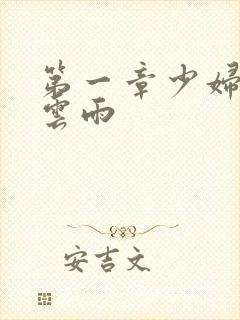 第一章少婦
雲雨
安吉文